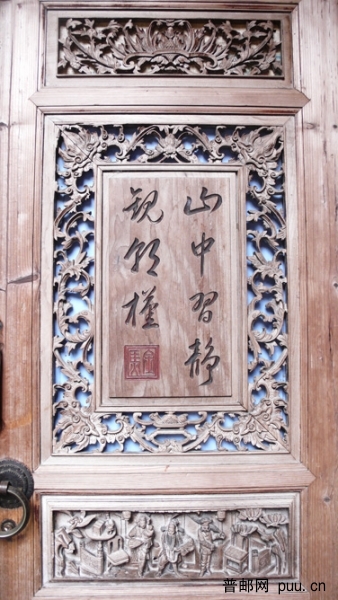 山中習静
觀朝槿
普邮网 puu.cn